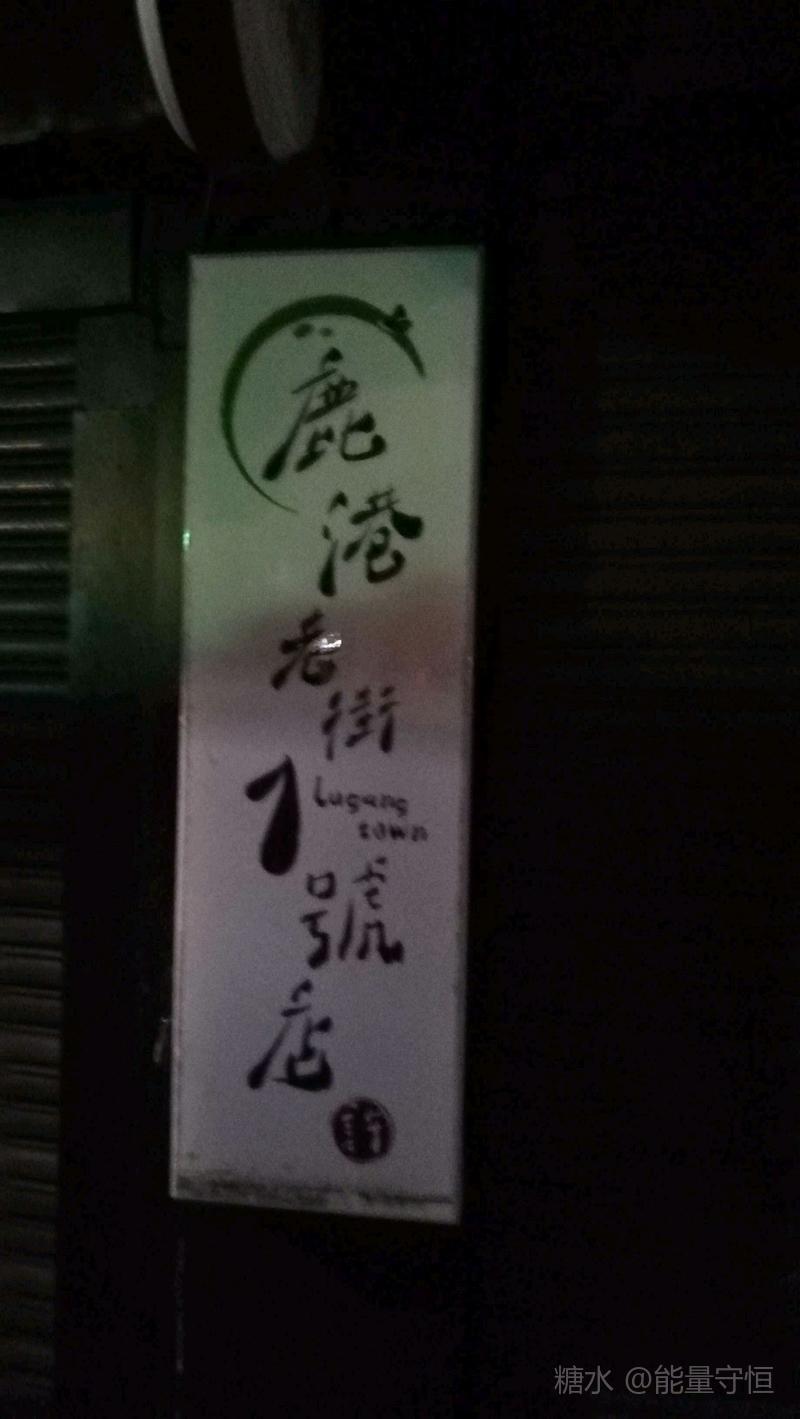 鹿港老街
1號店
Lugang
town
糖水 @能量守恒